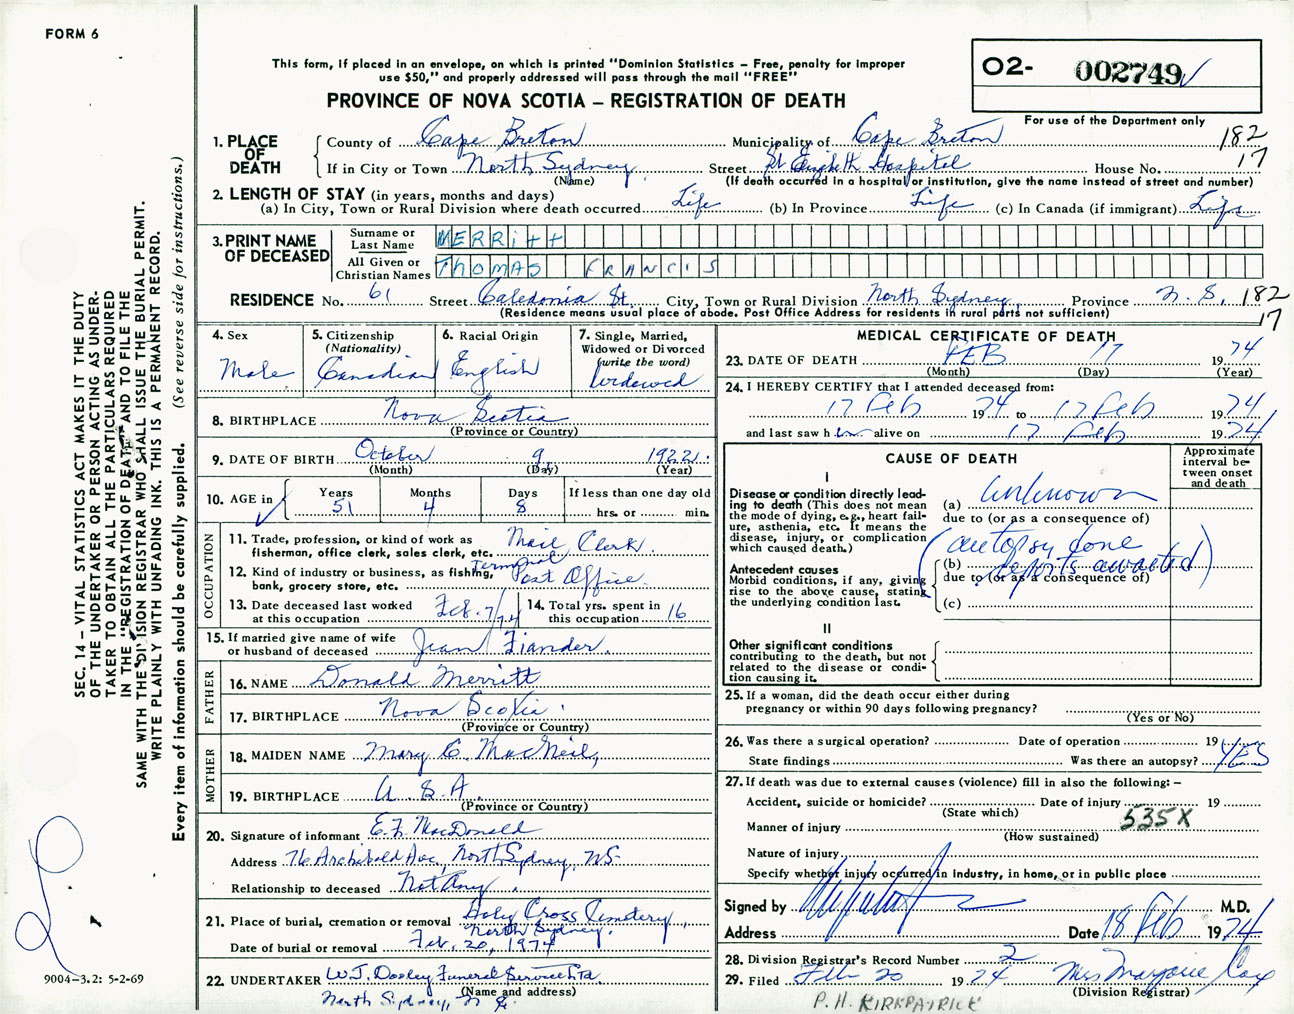 FORM 6
This form, if placed in an envelope, on which is printed "Dominion Statistics – Free, penalty for improper
use $50," and properly addressed will pass through the mail "FREE"
PROVINCE OF NOVA SCOTIA – REGISTRATION OF DEATH
O2- 002749
For use of the Department only
182
17
1. PLACE OF DEATH
County of Cape Breton Municipality of Cape Breton
If in City or Town North Sydney Street St Elizabeth Hospital House No.
(Name) (If death occurred in a hospital or institution, give the name instead of street and number)
2. LENGTH OF STAY (in years, months and days)
(a) In City, Town or Rural Division where death occurred Life (b) In Province Life (c) In Canada (if immigrant) Life
3. PRINT NAME OF DECEASED
Surname or Last Name MERRitt
All Given or Christian Names THOMAS FRANCIS
RESIDENCE No. 61 Street Caledonia St. City, Town or Rural Division North Sydney, Province N.S. 182
17
(Residence means usual place of abode. Post Office Address for residents in rural parts not sufficient)
4. Sex
Male
5. Citizenship
(Nationality)
Canadian
6. Racial Origin
English
7. Single, Married,
Widowed or Divorced
(write the word)
Widowed
8. BIRTHPLACE Nova Scotia
(Province or Country)
9. DATE OF BIRTH October 9 1922.
(Month) (Day) (Year)
10. AGE in
Years Months Days If less than one day old
51 4 8 hrs. or min.
OCCUPATION
11. Trade, profession, or kind of work as
fisherman, office clerk, sales clerk, etc. Mail Clerk.
12. Kind of industry or business, as fishing,
bank, grocery store, etc. Terminal Post Office.
13. Date deceased last worked
at this occupation Feb. 7/74
14. Total yrs. spent in
this occupation 16
15. If married give name of wife
or husband of deceased Jean Fiander.
FATHER
16. NAME Donald Merritt
17. BIRTHPLACE Nova Scotia.
(Province or Country)
MOTHER
18. MAIDEN NAME Mary C. MacNeil,
19. BIRTHPLACE U.S.A.
(Province or Country)
20. Signature of informant E.F. MacDonald
Address 76 Archibald Ave, North Sydney, NS.
Relationship to deceased Not Any.
21. Place of burial, cremation or removal Holy Cross Cemetery,
North Sydney.
Date of burial or removal Feb. 20, 1974
22. UNDERTAKER W.J. Dooley Funeral Service Ltd
(Name and address)
North Sydney, N S.
MEDICAL CERTIFICATE OF DEATH
23. DATE OF DEATH FEB 17 1974
(Month) (Day) (Year)
24. I HEREBY CERTIFY that I attended deceased from:
17 Feb 1974 to 17 Feb 1974
and last saw him alive on 17 Feb 1974
CAUSE OF DEATH
Approximate
interval be-
tween onset
and death
I
Disease or condition directly lead-
ing to death (This does not mean
the mode of dying, e.g., heart fail-
ure, asthenia, etc. It means the
disease, injury, or complication
which caused death.)
(a) Unknown
due to (or as a consequence of)
(autopsy done
Antecedent causes
Morbid conditions, if any, giving
rise to the above cause, stating
the underlying condition last.
(b) reports awaited)
due to (or as a consequence of)
(c)
II
Other significant conditions
contributing to the death, but not
related to the disease or condi-
tion causing it.
25. If a woman, did the death occur either during
pregnancy or within 90 days following pregnancy?
(Yes or No)
26. Was there a surgical operation? Date of operation 19
State findings Was there an autopsy? YES
27. If death was due to external causes (violence) fill in also the following: –
Accident, suicide or homicide? Date of injury 19
(State which)
535X
Manner of injury
(How sustained)
Nature of injury
Specify whether injury occurred in Industry, in home, or in public place
Signed by M.D.
Address Date 18 Feb 1974
28. Division Registrar's Record Number 2
29. Filed Feb 20 1974 Mrs Marjorie Cox
(Division Registrar)
P. H. KIRKPATRICK
SEC. 14 – VITAL STATISTICS ACT MAKES IT THE DUTY
OF THE UNDERTAKER OR PERSON ACTING AS UNDER-
TAKER TO OBTAIN ALL THE PARTICULARS REQUIRED
IN THE "REGISTRATION OF DEATH" AND TO FILE THE
SAME WITH THE DIVISION REGISTRAR WHO SHALL ISSUE THE BURIAL PERMIT.
WRITE PLAINLY WITH UNFADING INK. THIS IS A PERMANENT RECORD.
Every item of information should be carefully supplied. (See reverse side for instructions.)
9004–3.2: 5-2-69